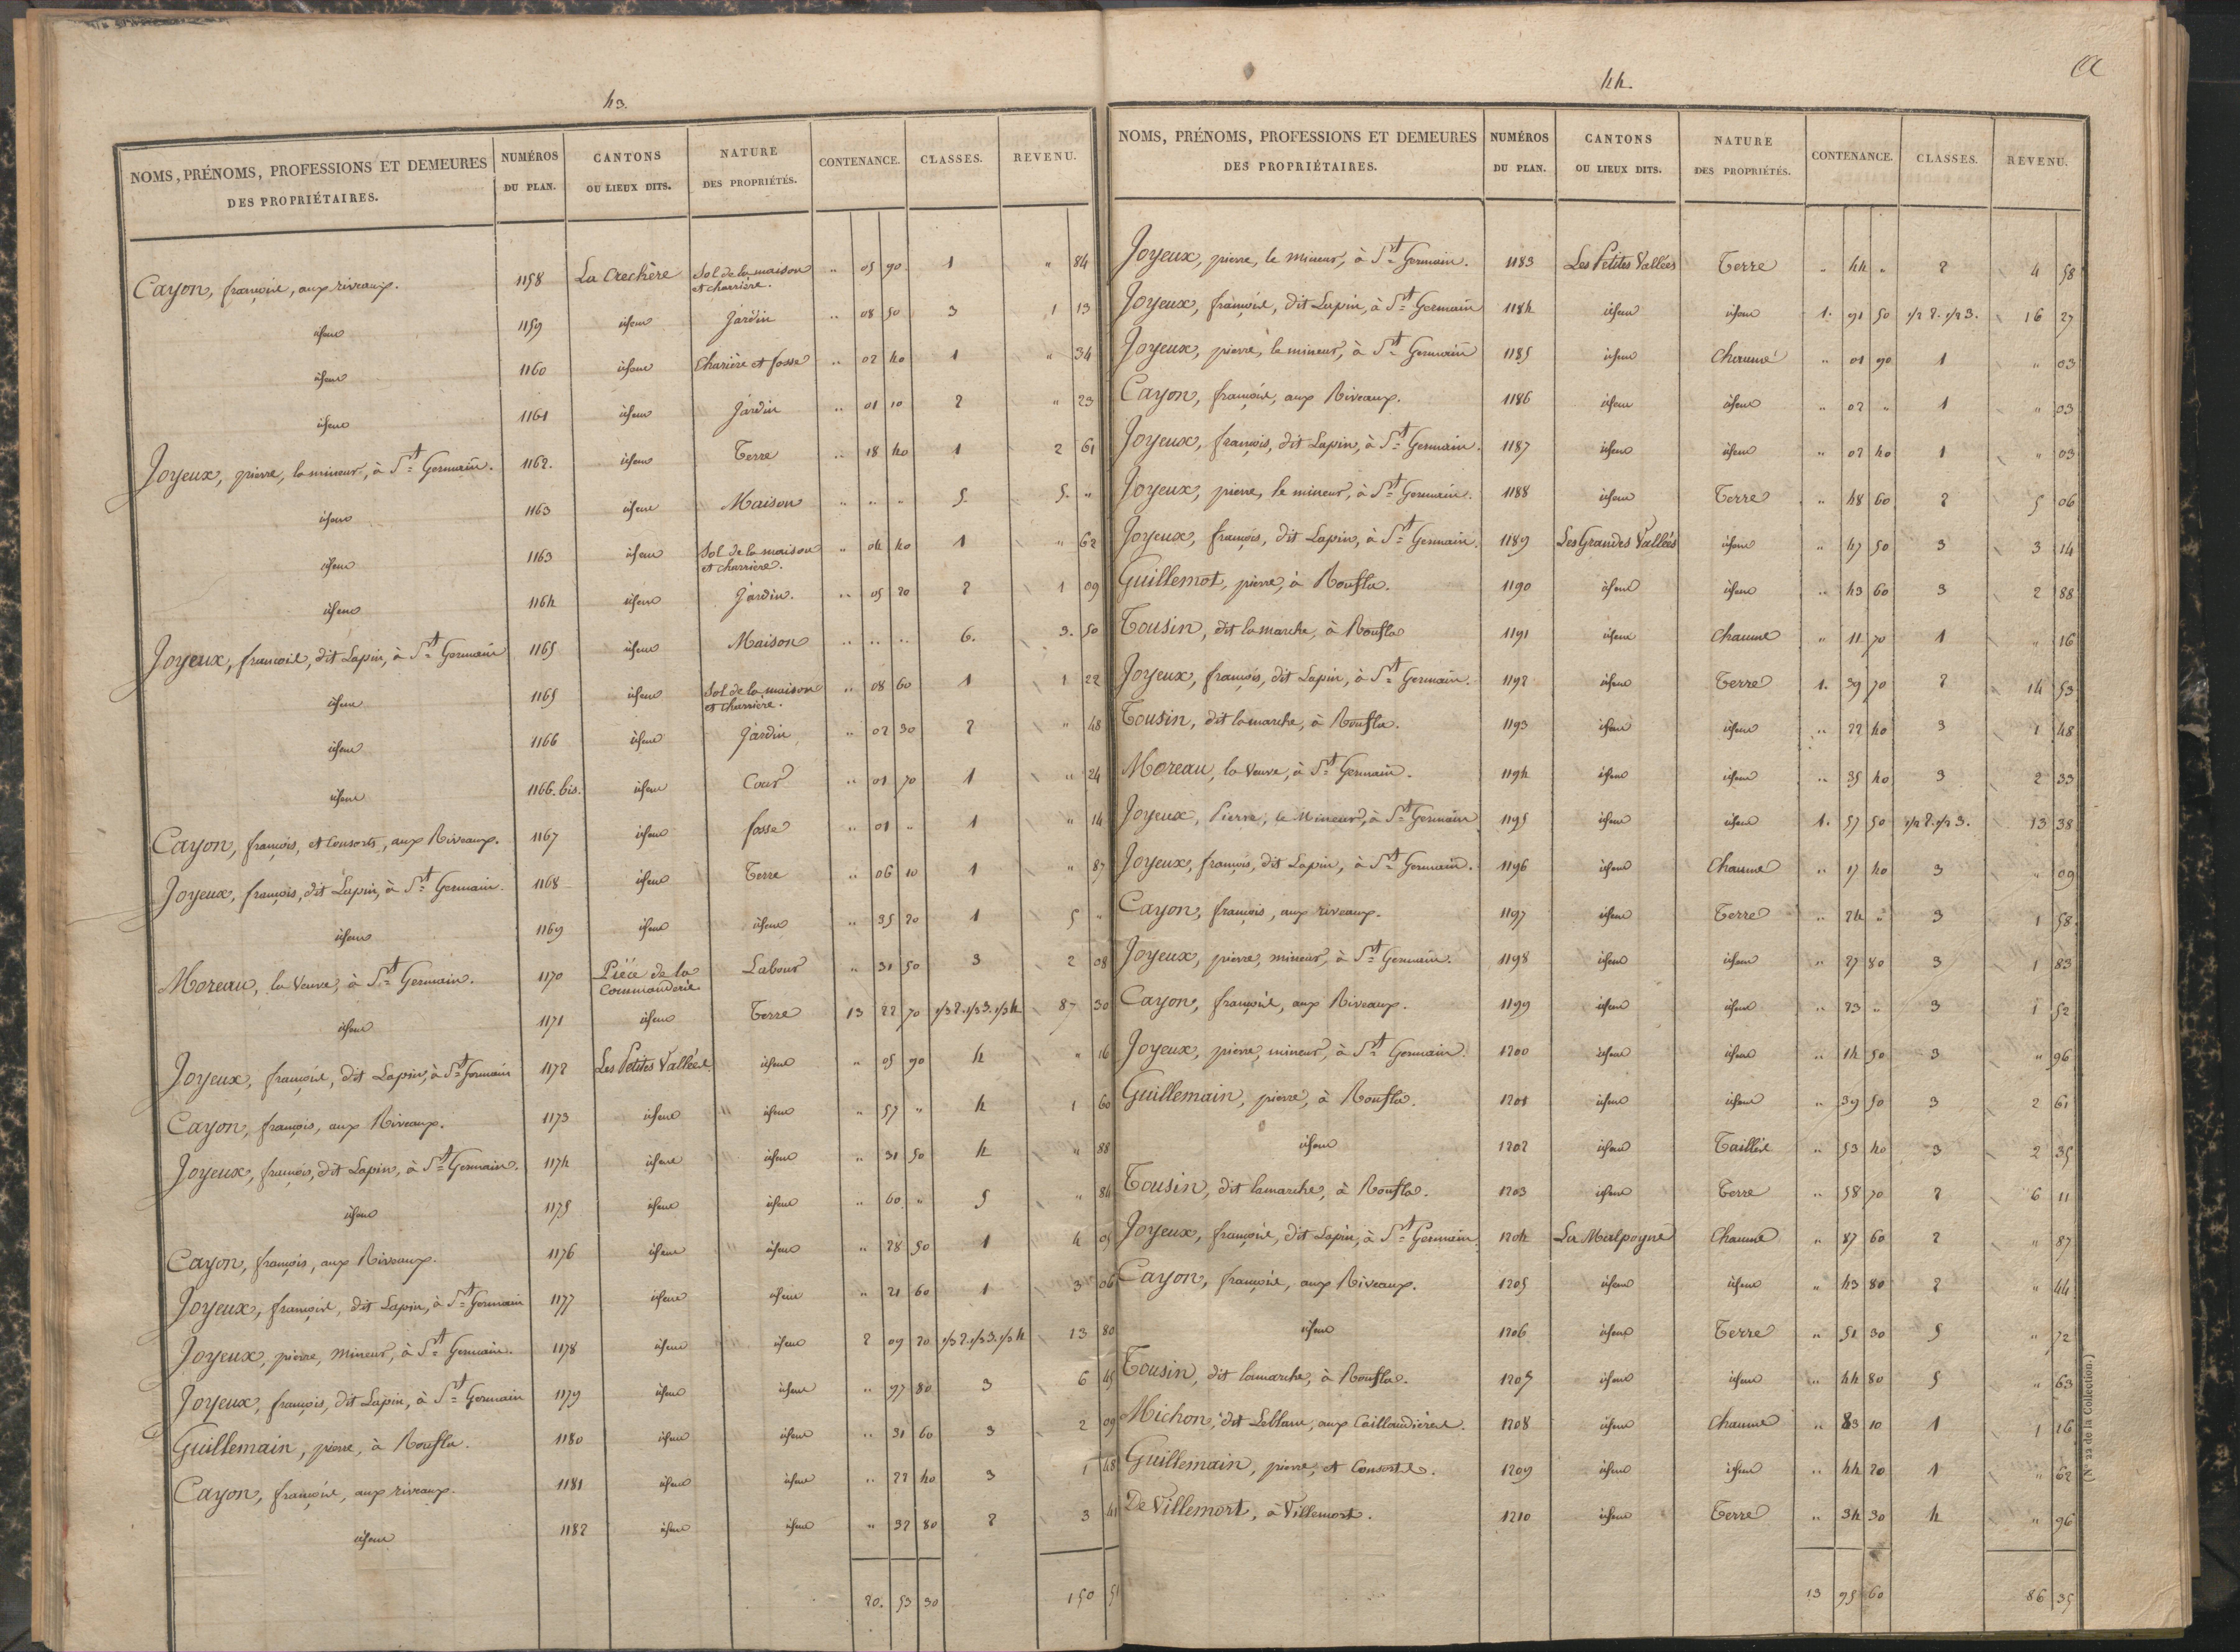 43.
NOMS, PRÉNOMS, PROFESSIONS ET DEMEURES DES PROPRIÉTAIRES. NUMÉROS DU PLAN. CANTONS OU LIEUX DITS. NATURE DES PROPRIÉTÉS. CONTENANCE. CLASSES. REVENU.
Cayon, françois, aux riveaux. 1158 La Crechère Sol de la maison et charrière. " 05 90 1 " 84
idem 1159 idem Jardin " 08 50 3 1 13
idem 1160 idem Charière et fosse " 02 40 1 " 34
idem 1161 idem Jardin " 01 10 2 " 23
Joyeux, pierre, le mineur, à St Germain. 1162. idem Terre " 18 40 1 2 61
idem 1163 idem Maison " " " 5. 5. "
idem 1163 idem Sol de la maison et charrière. " 04 40 1 " 62
idem 1164 idem Jardin. " 05 20 2 1 09
Joyeux, françois, dit Lapin, à St Germain 1165 idem Maison " " " 6. 3. 50
idem 1165 idem Sol de la maison et charrière. " 08 60 1 1 22
idem 1166 idem Jardin " 02 30 2 " 48
idem 1166. bis. idem Cour " 01 70 1 " 24
Cayon, françois, et Consorts, aux Riveaux. 1167 idem fosse " 01 " 1 " 14
Joyeux, françois, dit Lapin, à St Germain 1168 idem Terre " 06 10 1 " 87
idem 1169 idem idem " 35 20 1 5 "
Moreau, la Veuve, à St Germain. 1170 Pièce de la Commanderie Labour " 31 50 3 2 08
idem 1171 idem Terre 13 22 70 1/3 2. 1/3 3. 1/3 4 87 30
Joyeux, françois, dit Lapin, à St Germain 1172 Les Petites Vallées idem " 05 90 4 " 16
Cayon, françois, aux Riveaux. 1173 idem idem " 57 " 4 1 60
Joyeux, françois, dit Lapin, à St Germain. 1174 idem idem " 31 50 4 " 88
idem 1175 idem idem " 60 " 5 " 84
Cayon, françois, aux Riveaux. 1176 idem idem " 28 50 1 4 05
Joyeux, françois, dit Lapin, à St Germain 1177 idem idem " 21 60 1 3 06
Joyeux, pierre, mineur, à St Germain. 1178 idem idem 2 09 20 1/3 2. 1/3 3. 1/3 4 13 80
Joyeux, françois, dit Lapin, à St Germain 1179 idem idem " 97 80 3 6 45
Guillemain, pierre, à Roufla. 1180 idem idem " 31 60 3 2 09
Cayon, françois, aux riveaux. 1181 idem idem " 22 40 3 1 48
idem 1182 idem idem " 32 80 2 3 41
20. 53 30 150 51
44.
NOMS, PRÉNOMS, PROFESSIONS ET DEMEURES DES PROPRIÉTAIRES. NUMÉROS DU PLAN. CANTONS OU LIEUX DITS. NATURE DES PROPRIÉTÉS. CONTENANCE. CLASSES. REVENU.
Joyeux, pierre, le mineur, à St Germain. 1183 Les Petites Vallées Terre " 44 " 2 4 58
Joyeux, françois, dit Lapin, à St Germain 1184 idem idem 1. 91 50 1/2 2. 1/2 3. 16 27
Joyeux, pierre, le mineur, à St Germain 1185 idem Chaume " 01 90 1 " 03
Cayon, françois, aux Riveaux. 1186 idem idem " 02 " 1 " 03
Joyeux, françois, dit Lapin, à St Germain. 1187 idem idem " 02 40 1 " 03
Joyeux, pierre, le mineur, à St Germain. 1188 idem Terre " 48 60 2 5 06
Joyeux, françois, dit Lapin, à St Germain. 1189 Les Grandes Vallées idem " 47 50 3 3 14
Guillemot, pierre, à Roufla. 1190 idem idem " 43 60 3 2 88
Tousin, dit lamarche, à Roufla 1191 idem Chaume " 11 70 1 " 16
Joyeux, françois, dit Lapin, à St Germain. 1192 idem Terre 1. 39 70 2 14 53
Tousin, dit lamarche, à Roufla. 1193 idem idem " 22 40 3 1 48
Moreau, la Veuve, à St Germain. 1194 idem idem " 35 40 3 2 33
Joyeux, Pierre, le Mineur, à St Germain 1195 idem idem 1. 57 50 1/2 2. 1/2 3. 13 38
Joyeux, françois, dit Lapin, à St Germain. 1196 idem Chaume " 17 40 3 " 09
Cayon, françois, aux riveaux. 1197 idem Terre " 24 " 3 1 58
Joyeux, pierre, mineur, à St Germain. 1198 idem idem " 27 80 3 1 83
Cayon, françois, aux Riveaux. 1199 idem idem " 23 " 3 1 52
Joyeux, pierre, mineur, à St Germain. 1200 idem idem " 14 50 3 " 96
Guillemain, pierre, à Roufla. 1201 idem idem " 39 50 3 2 61
idem 1202 idem Taillis " 53 40 3 2 35
Tousin, dit lamarche, à Roufla. 1203 idem Terre " 58 70 2 6 11
Joyeux, françois, dit Lapin, à St Germain 1204 La Malpogne Chaume " 87 60 2 " 87
Cayon, françois, aux Riveaux. 1205 idem idem " 43 80 2 " 44
idem 1206 idem Terre " 51 30 5 " 72
Tousin, dit lamarche, à Roufla. 1207 idem idem " 44 80 5 " 63
Michon, dit Leblanc, aux Caillaudières. 1208 idem Chaume " 83 10 1 1 16
Guillemain, pierre, et Consorts. 1209 idem idem " 44 20 1 " 62
De Villemort, à Villemort. 1210 idem Terre " 34 30 4 " 96
13 95 60 86 35
(N° 22 de la Collection.)